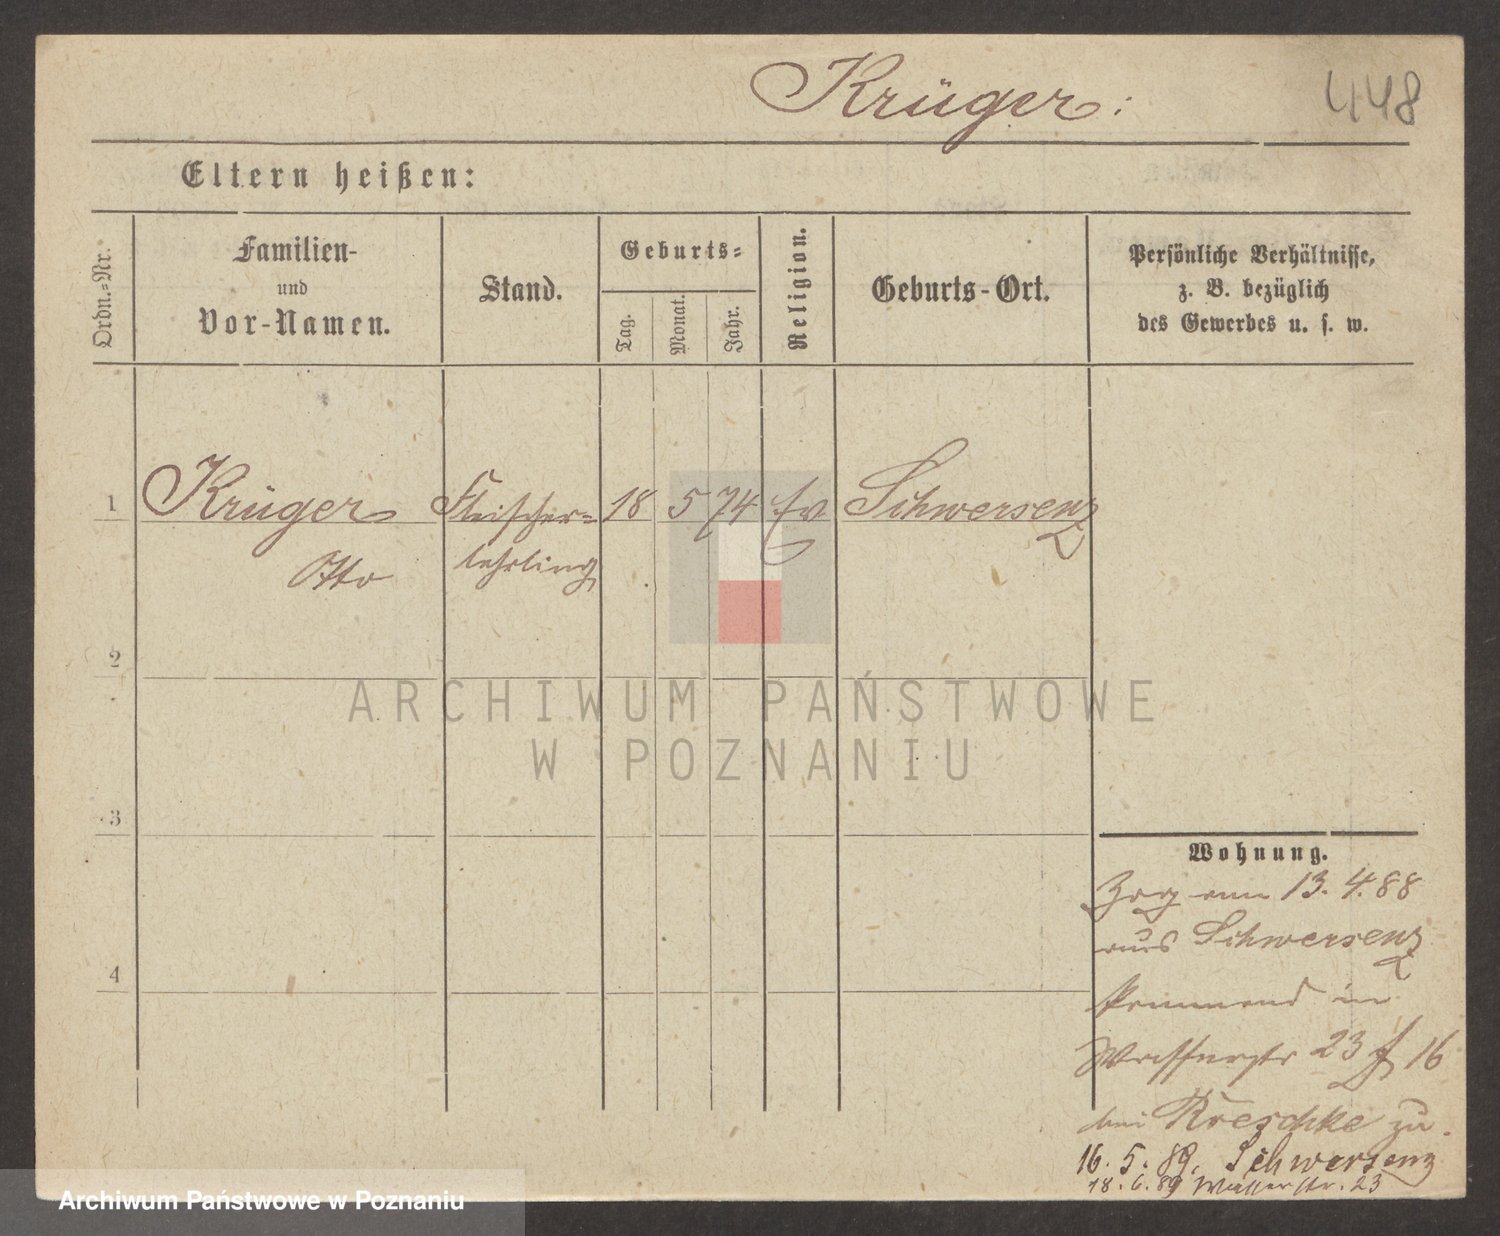 Krüger:
448
Eltern heißen:
Ordn.-Nr.
Familien-
und
Vor-Namen.
Stand.
Geburts-
Tag.
Monat.
Jahr.
Religion.
Geburts-Ort.
Persönliche Verhältnisse,
z. B. bezüglich
des Gewerbes u. s. w.
1
Krüger
Fleischer-
18
5
74
Ev
Schwersenz
Otto
lehrling
2
ARCHIWUM PAŃSTWOWE
W POZNANIU
3
Wohnung.
Zog am 13. 4. 88
aus Schwersenz
4
kommend in
23 16
bei Kreschke zu.
16. 5. 89. Schwersenz
18. 6. 89 Wasserstr. 23
Archiwum Państwowe w Poznaniu